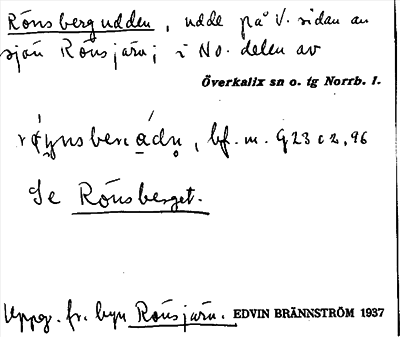 Rönsbergudden, udde på V. sidan av
sjön Rönsjärn; i No. delen av
Överkalix sn o. tg Norrb. l.
bf. m. G 23 c 2, 96
Se Rönsberget.
Uppg. fr. byn Rönsjärn. EDVIN BRÄNNSTRÖM 1937